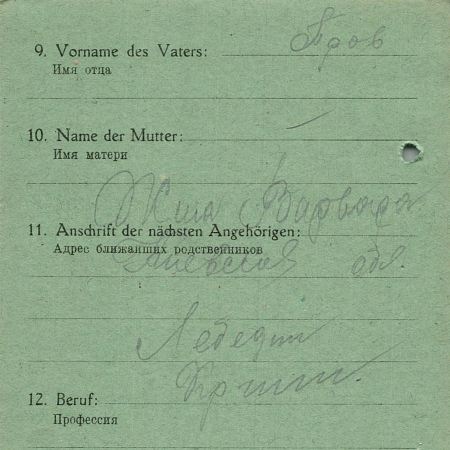 9. Vorname des Vaters: Пров
Имя отца
10. Name der Mutter: —
Имя матери
Жина Варвара
11. Anschrift der nächsten Angehörigen:
Адрес ближайших родственников
обл.
Лебедин
12. Beruf:
Профессия